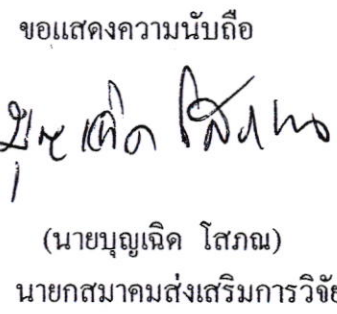 ขอแสดงความนับถือ
บุญเฉิด โสภณ
(นายบุญเฉิด โสภณ)
นายกสมาคมส่งเสริมการวิจัย